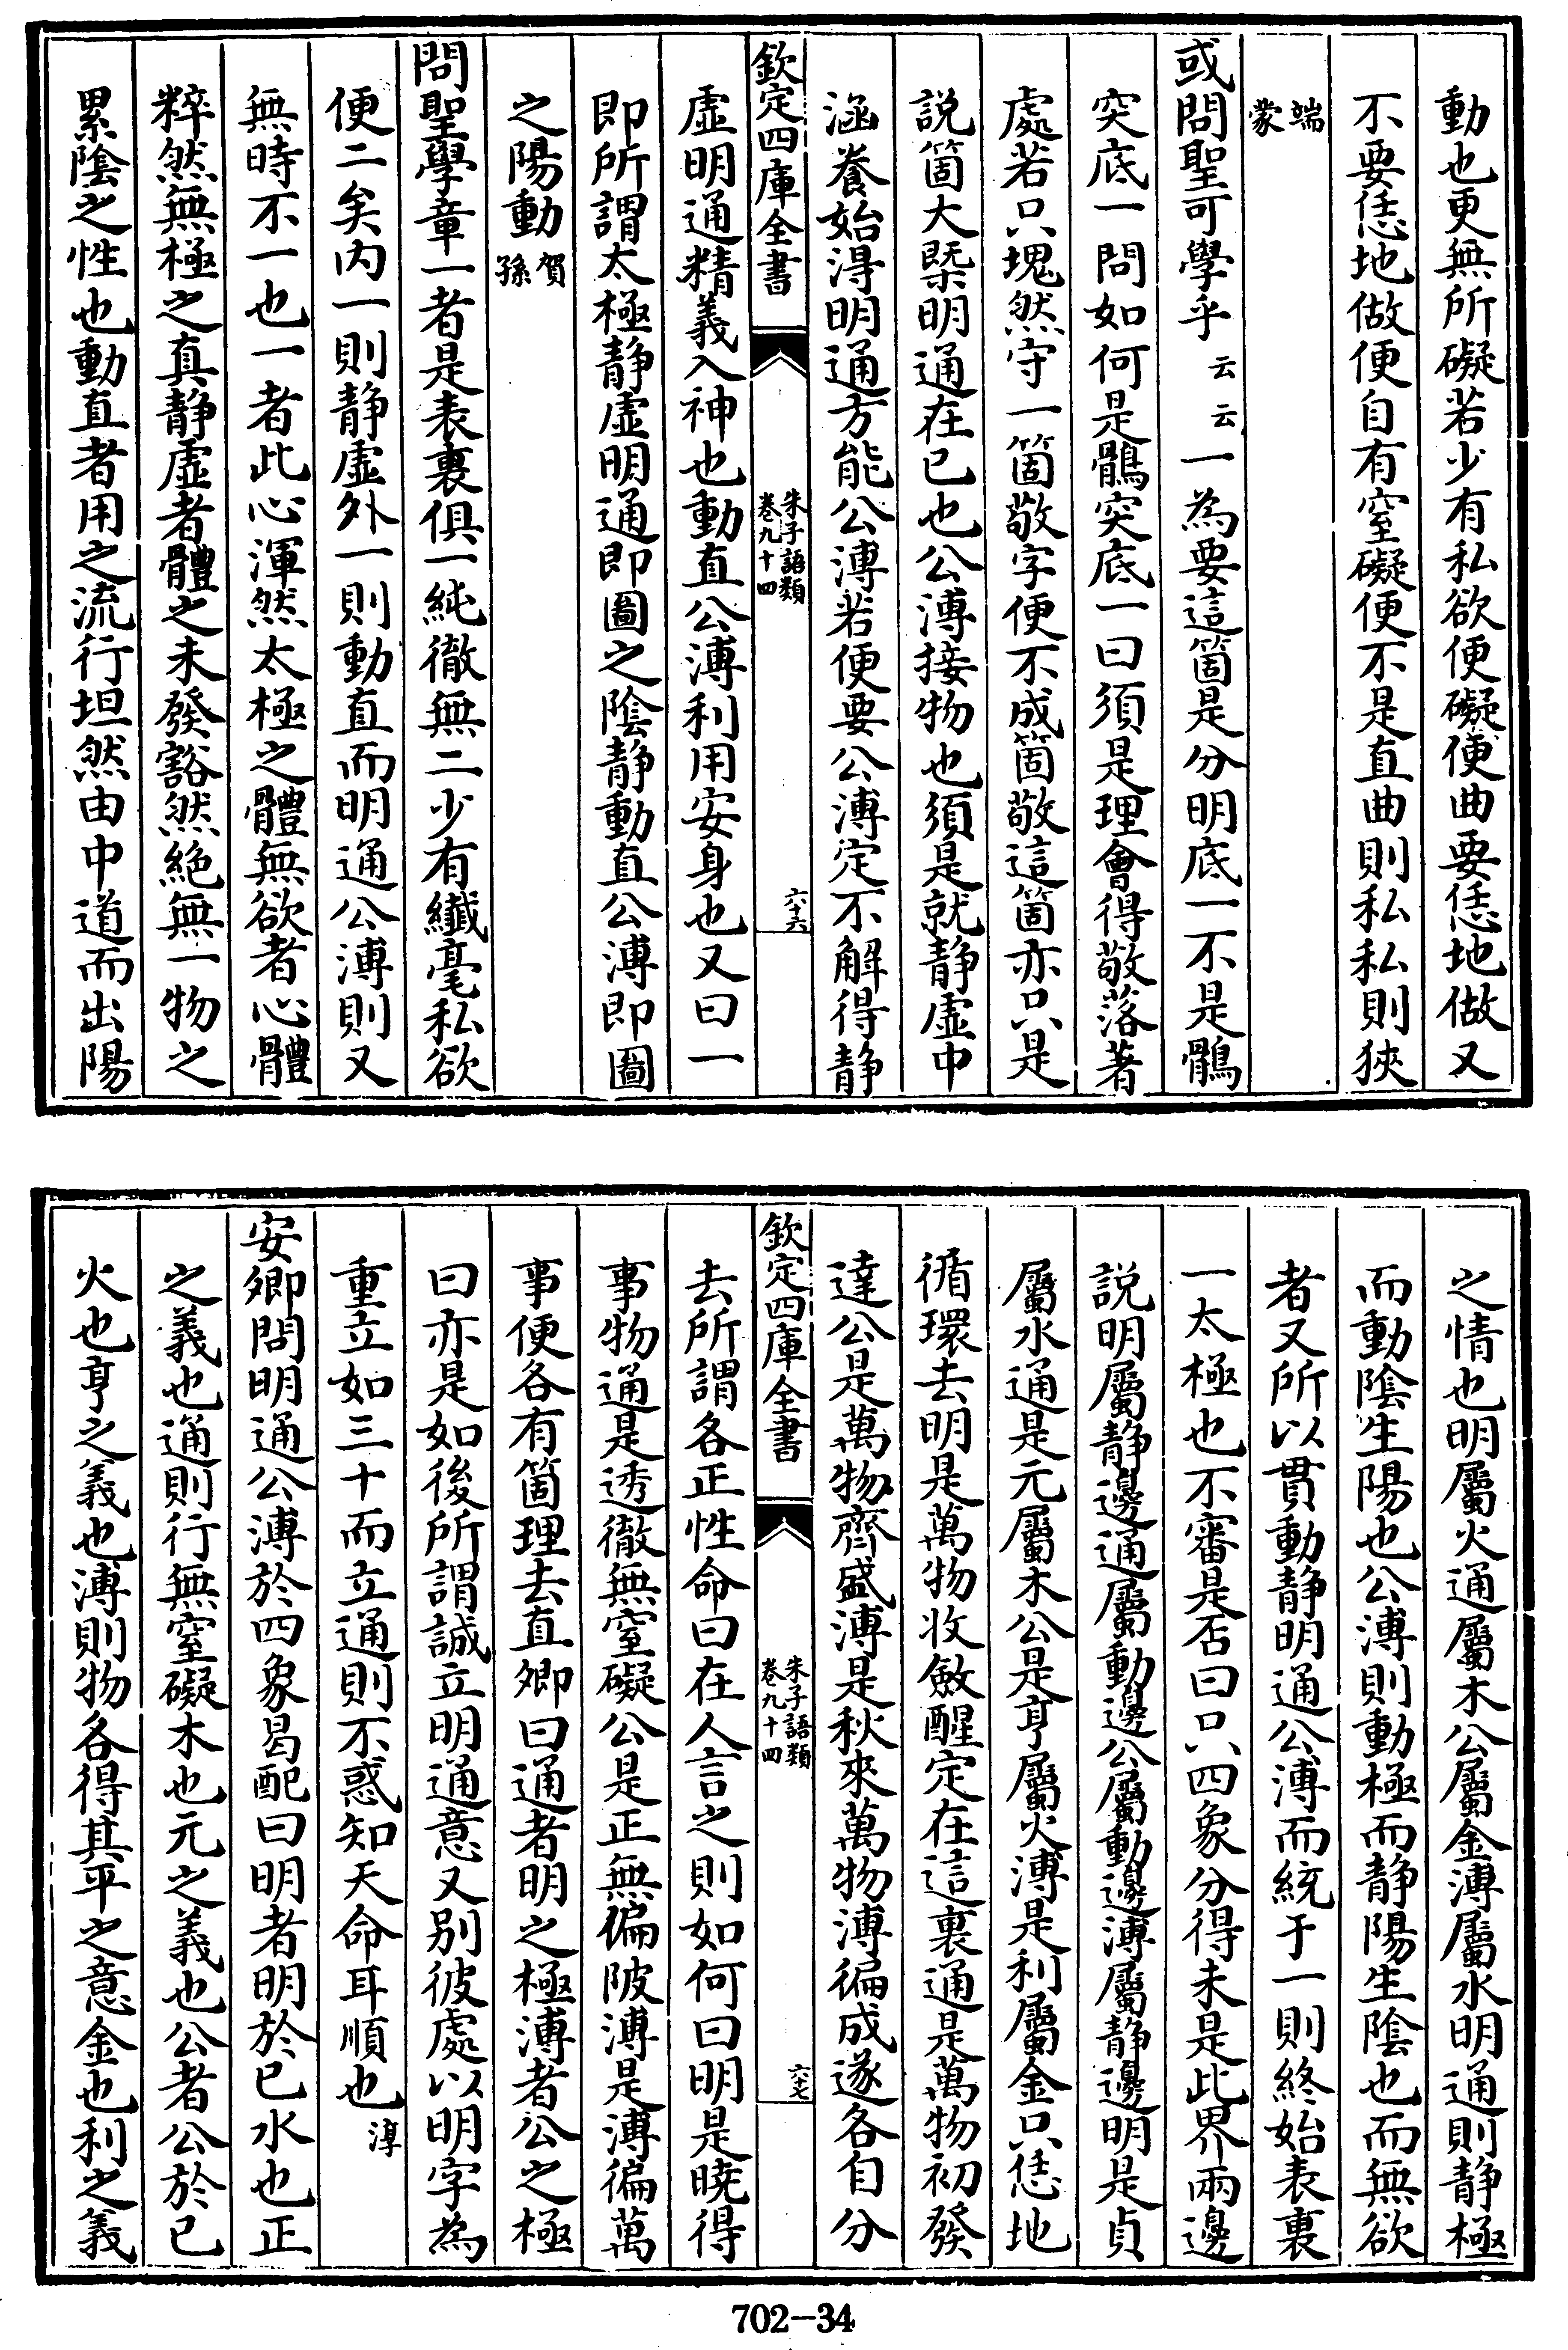 動也更無所礙若少有私欲便礙便曲要恁地做又
不要恁地做便自有窒礙便不是直曲則私私則狹
端蒙
或問聖可學乎云云一為要這箇是分明底一不是鶻
突底一問如何是鶻突底一曰須是理會得敬落著
處若只塊然守一箇敬字便不成箇敬這箇亦只是
說箇大槩明通在已也公溥接物也須是就静虚中
涵養始得明通方能公溥若便要公溥定不解得静
欽定四庫全書
朱子語類
卷九十四
六十六
虚明通精義入神也動直公溥利用安身也又曰一
即所謂太極静虚明通即圖之陰静動直公溥即圖
之陽動賀孫
問聖學章一者是表裏俱一純徹無二少有纖毫私欲
便二矣内一則静虚外一則動直而明通公溥則又
無時不一也一者此心渾然太極之體無欲者心體
粹然無極之真静虚者體之未發豁然絶無一物之
累陰之性也動直者用之流行坦然由中道而出陽
之情也明屬火通屬木公屬金溥屬水明通則静極
而動陰生陽也公溥則動極而静陽生陰也而無欲
者又所以貫動静明通公溥而統于一則終始表裏
一太極也不審是否曰只四象分得未是此界兩邊
說明屬静邊通屬動邊公屬動邊溥屬静邊明是貞
屬水通是元屬木公是亨屬火溥是利屬金只恁地
循環去明是萬物收斂醒定在這裏通是萬物初發
達公是萬物齊盛溥是秋來萬物溥徧成遂各自分
欽定四庫全書
朱子語類
卷九十四
六十七
去所謂各正性命曰在人言之則如何曰明是曉得
事物通是透徹無窒礙公是正無偏陂溥是溥徧萬
事便各有箇理去直卿曰通者明之極溥者公之極
曰亦是如後所謂誠立明通意又别彼處以明字為
重立如三十而立通則不惑知天命耳順也淳
安卿問明通公溥於四象曷配曰明者明於已水也正
之義也通則行無窒礙木也元之義也公者公於已
火也亨之義也溥則物各得其平之意金也利之義
702-34